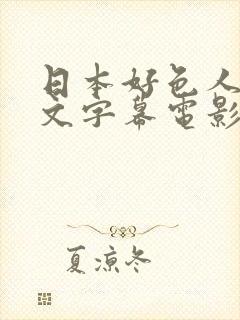 日本好色人
文字幕電影
夏涼冬